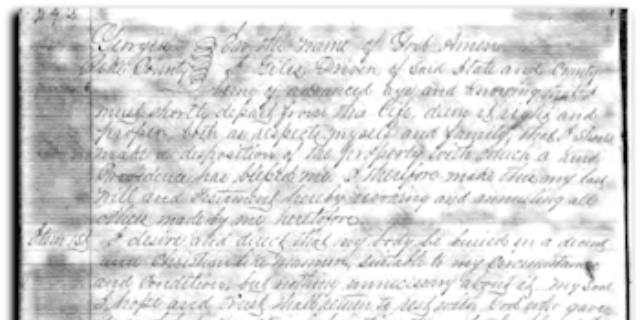 Georgia In the name of God Amen
County I Giles Driver of Said State and County
being of advanced age and knowing that I
must shortly depart from this life, deem it right and
proper both as respects myself and family, that I should
make a disposition of the property with which a kind
Providence has blessed me. I therefore make this my last
Will and testament hereby revoking and annulling all
others made by me heretofore
Item 1st I desire and direct that my body be buried in a decent
and Christian like manner, suitable to my Circumstances
and Condition, but nothing unnecessary about it my Soul
I hope and trust shall return to rest with God who gave